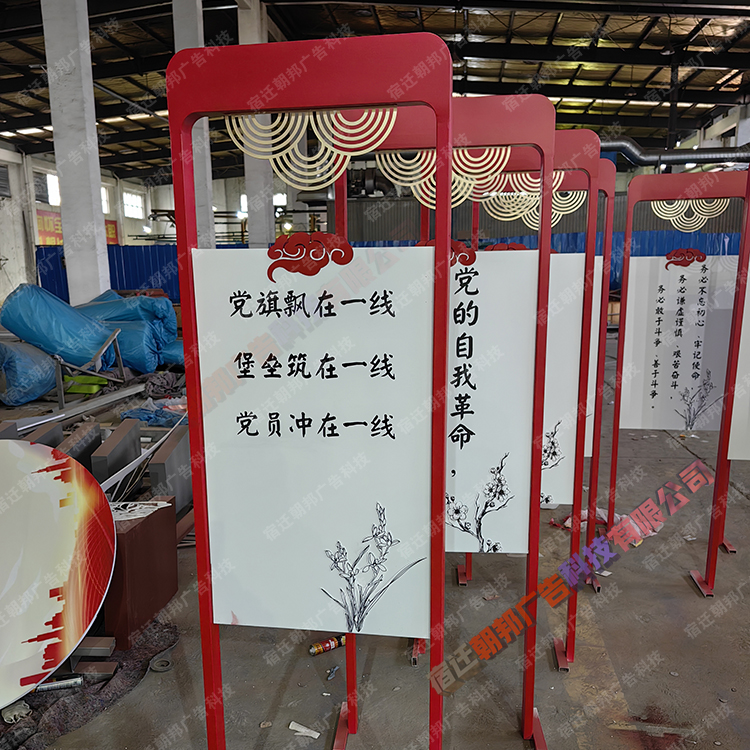 党旗飘在一线
堡垒筑在一线
党员冲在一线
党的自我革命，
务必不忘初心、牢记使命，
务必谦虚谨慎、艰苦奋斗，
务必敢于斗争、善于斗争。
宿迁朝邦广告科技有限公司
宿迁朝邦广告科技